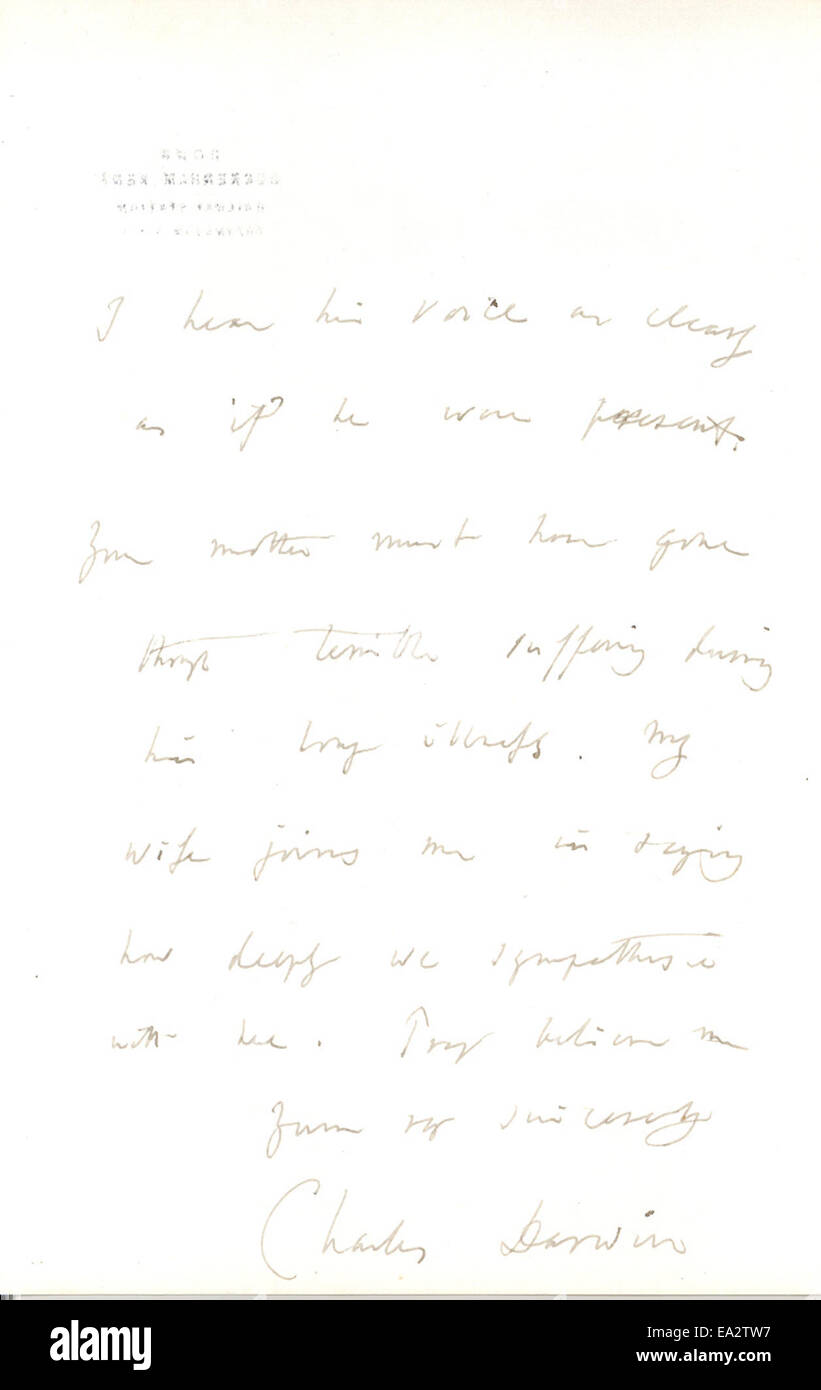 I hear his voice as clearly
as if he were present.
Your mother must have gone
through terrible suffering during
his long illness. My
wife joins me in saying
how deeply we sympathise
with her. Pray believe me
Yours very sincerely
Charles Darwin
alamy
Image ID: EA2TW7
www.alamy.com